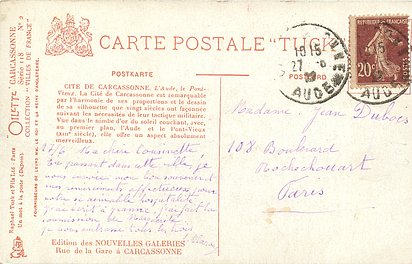 CARTE POSTALE "TUCK"
POSTKARTE
CITE DE CARCASSONNE. L'Aude, le Pont-
Vieux. La Cité de Carcassonne est remarquable
par l'harmonie de ses proportions et le dessin
de sa silhouette que vingt siècles ont façonnée
suivant les nécessités de leur tactique militaire.
Vue dans le nimbe d'or du soleil couchant, avec,
au premier plan, l'Aude et le Pont-Vieux
(XII siècle), elle offre un aspect absolument
merveilleux.
27/6 Ma chère Cousinette
En passant dans cette ville je
vous envoie mon bon souvenir et
mes affectueux pour
votre si aimable hospitalité
j'ai écrit à j'ai fait la
commission
je vous embrasse tous les trois
Edition des NOUVELLES GALERIES
Rue de la Gare à CARCASSONNE
OILETTE" CARCASSONNE
Série 118 N° 2
COLLECTION "VILLES DE FRANCE"
Raphael Tuck et Fils Ltd - Paris
Un mois à la poser (Déposé)
FOURNISSEURS DE LEURS M. LE ROI ET LA REINE D'ANGLETERRE.
RÉPUBLIQUE FRANÇAISE
20c
POSTES
1815
27 - 6
AUDE
AUDE
Madame Jean Dubois
108 Boulevard
Rochechouart
Paris